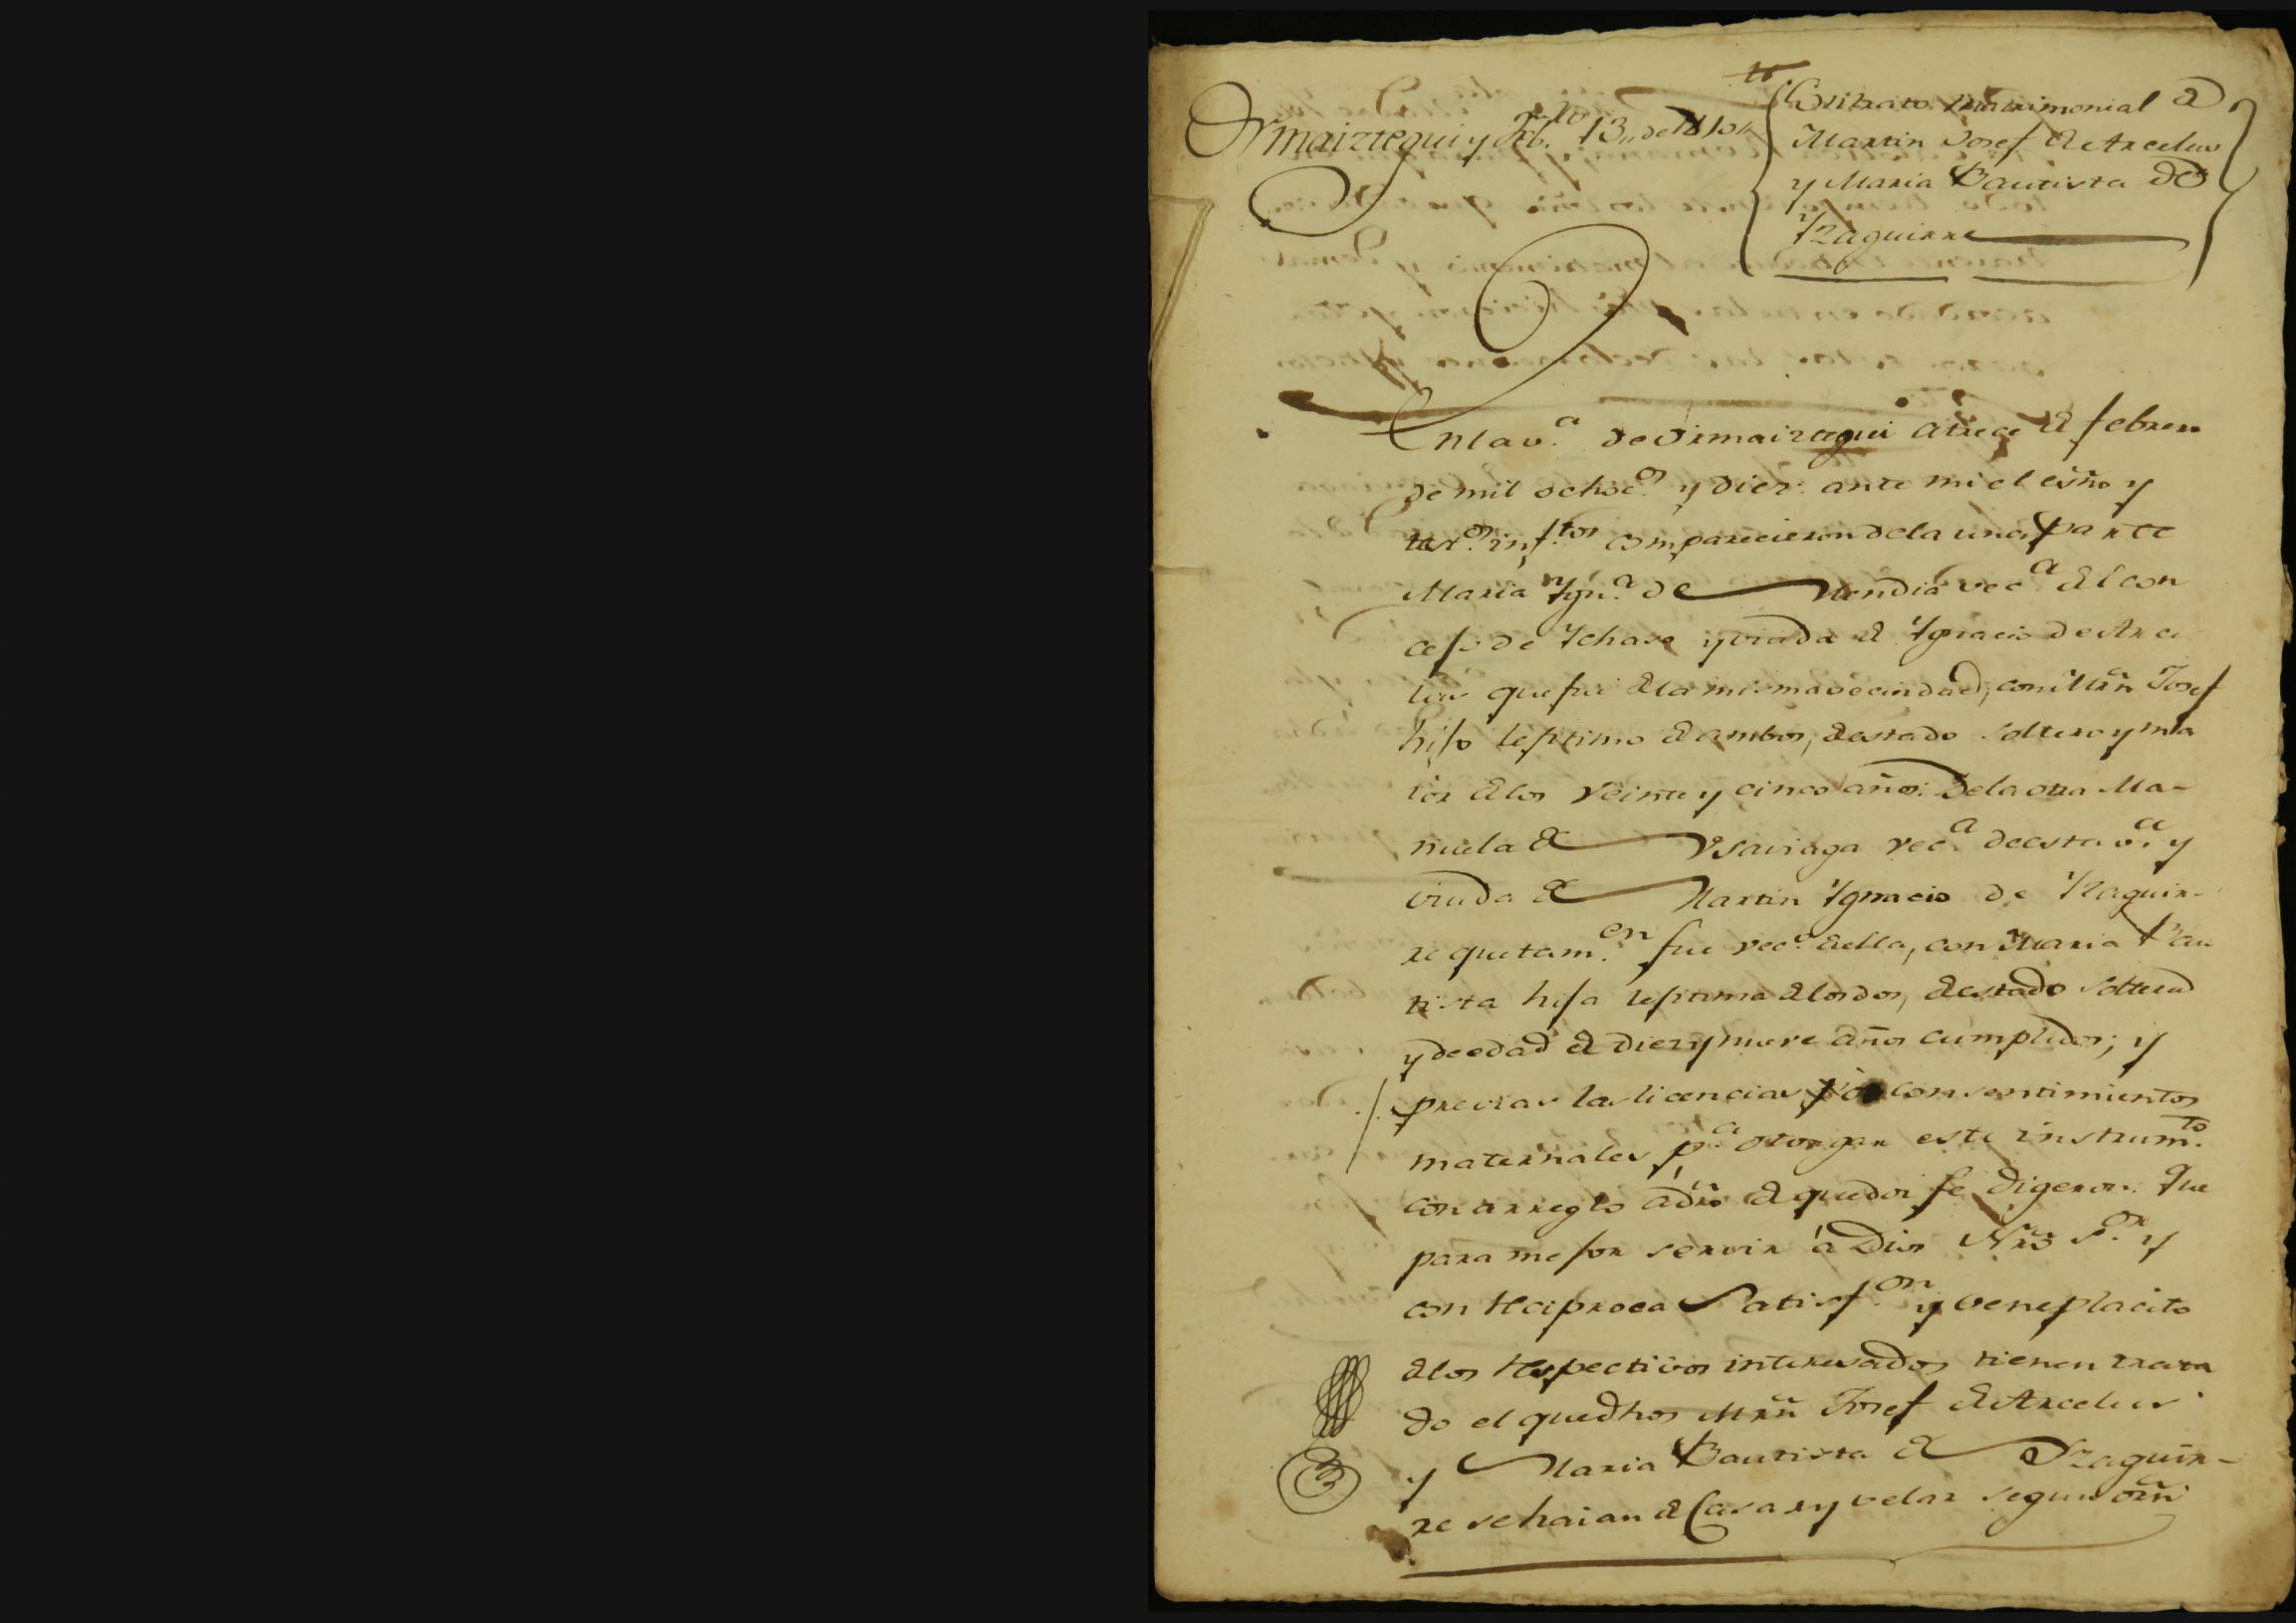 Ormaiztegui y Feb.ro 13,, de 1810,,
Contrato Matrimonial de
Martin Josef de Arcelus
y Maria Bautista de
Yzaguirre
En la v.a de Ormaiztegui a trece de febrero
de mil ochoc.os y diez: ante mi el esño y
test.os inf.tos comparecieron de la una parte
Maria Ygn.a de Mendia vec.a del con
cejo de Ychaso y viuda de Ygnacio de Arce
lus que fue de la misma vecindad, con Mrn Josef
hijo lejitimo de ambos, de estado soltero y ma
ior de los veinte y cinco años: De la otra Ma-
nuela de Usaviaga vec.a de esta v.a y
viuda de Martin Ygnacio de Yzaguir-
re que tam.en fue vec.o de ella, con Maria Bau
tista hija lejitima de los dos, de estado soltera
y de edad de diez y nueve años cumplidos; y
previas las licencias y consentimientos
maternales p.a otorgar este instrum.to
con arreglo a dro de que doi fe digeron: Que
para mejor servir á Dios Nrõ S.or y
con reciproca Satisf.on y veneplacito
de los respectivos interesados tienen trata
do el que dhos Mrn Josef de Arcelus
y Maria Bautista de Yzaguir-
re se haian de Casar y velar segun orñ